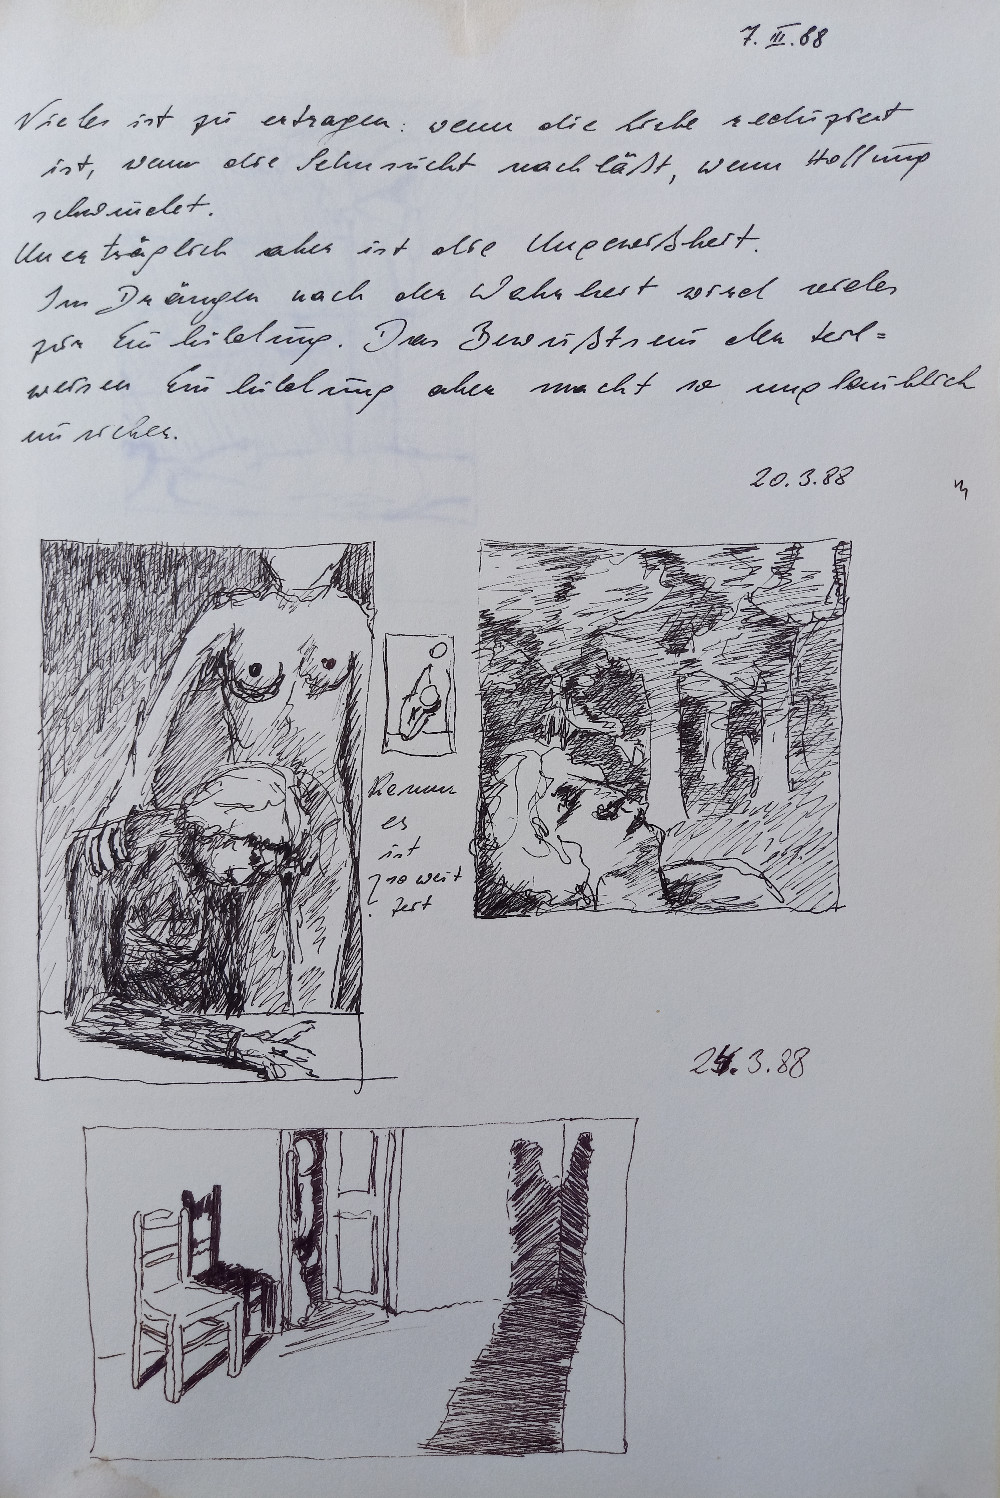 7. III. 88
Vieles ist zu ertragen: wenn die Liebe reduziert
ist, wenn die Sehnsucht nachläßt, wenn Hoffnung
schwindet.
Unerträglich aber ist die Ungewißheit.
Im Drängen nach der Wahrheit wird vieles
zur Einbildung. Das Bewußtsein der teil=
weisen Einbildung aber macht so unglaublich
unsicher.
20.3.88
es
ist
so weit
24.3.88